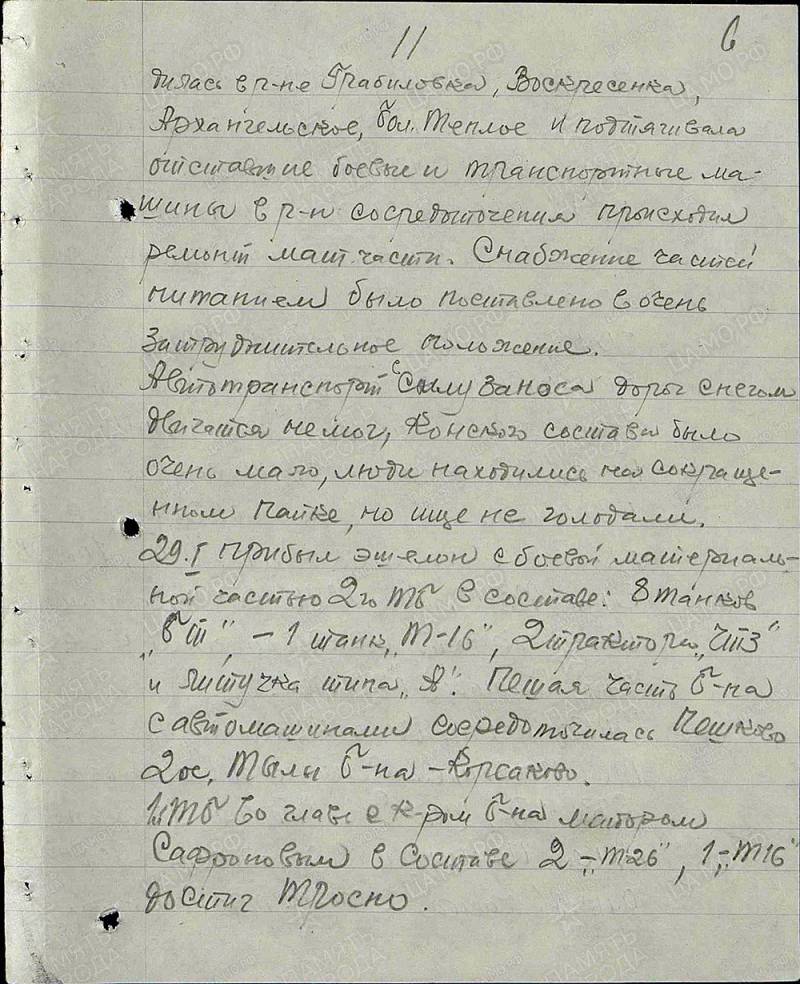 11 6
дилась в р-не Грабиловка, Воскресенка,
Архангельское, бол. Теплое и подтягивала
отставшие боевые и транспортные ма-
шины в р-н сосредоточения происходил
ремонт мат.части. Снабжение частей
питанием было поставлено в очень
затруднительное положение.
Автотранспорт с силу заноса дорог снегом
двигатся немог, Конского состава было
очень мало, люди находились на сокраще-
нном пайке, но ище не голодали.
29.I прибыл эшелон с боевой материаль-
ной частью 2го тб в составе: 8 танков
"бт", - 1 танк "Т-16", 2 трактора "ЧТЗ"
и литучка типа "А". Пешая часть б-на
с автомашинами сосредоточилась Пешково
2ое, Тылы б-на - Корсаково.
1й тб во главе с к-ром б-на майором
Сафроновым в составе 2 - "т26", 1 - "т16"
достиг Тросно.